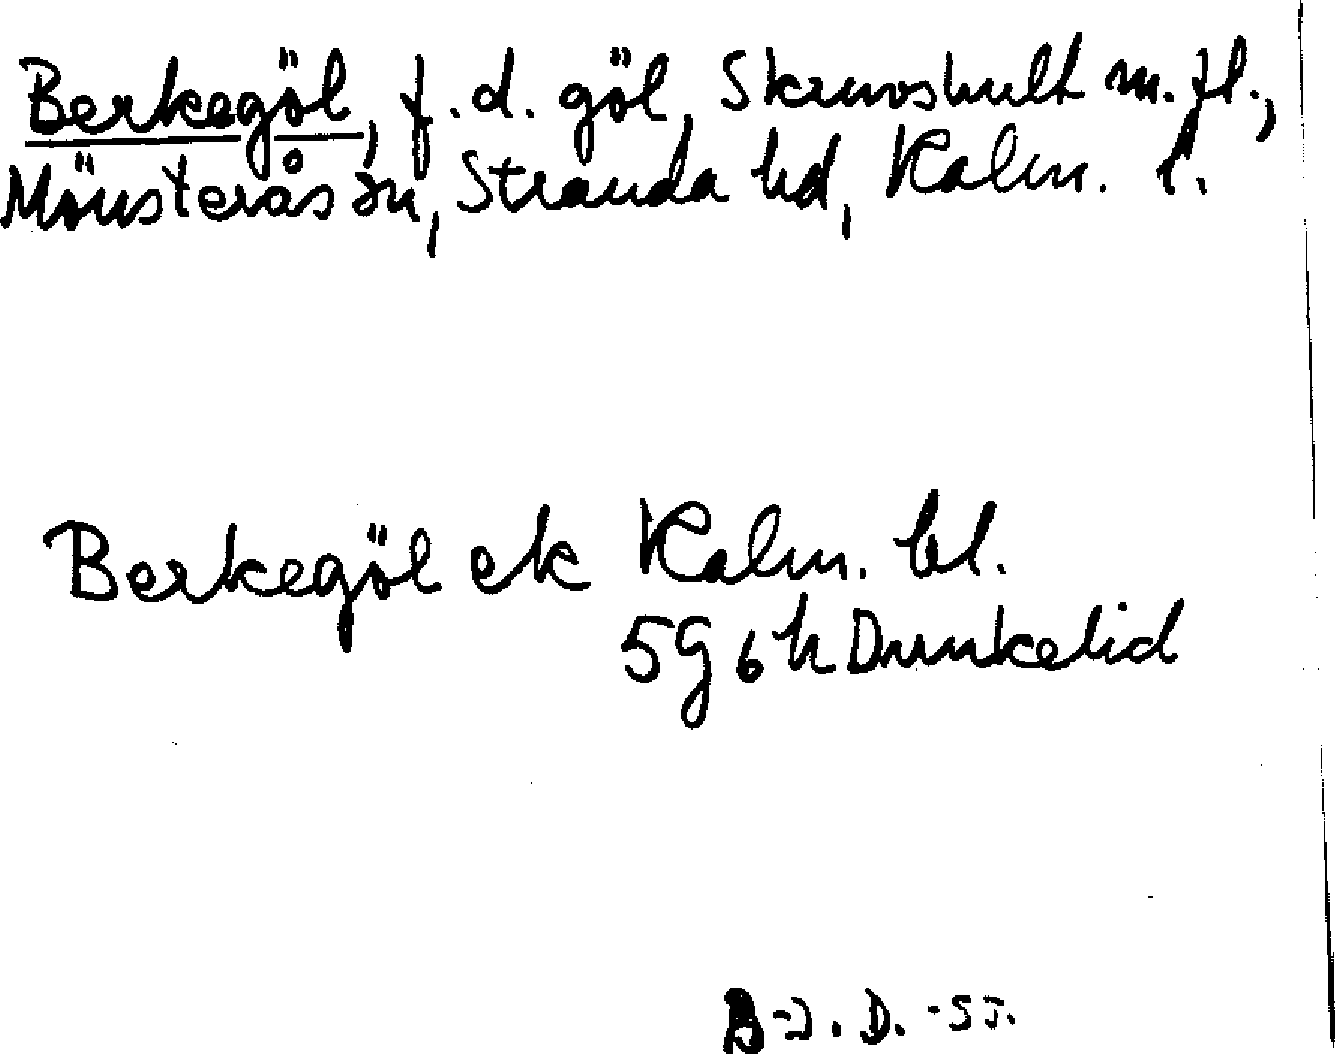 Berkegöl, f.d. göl, Skruvshult m.fl.,
Mönsterås sn, Stranda hd, Kalm. l.
Berkegöl ek Kalm. bl.
5G 6h Dunkelid
B-J. D. -55.